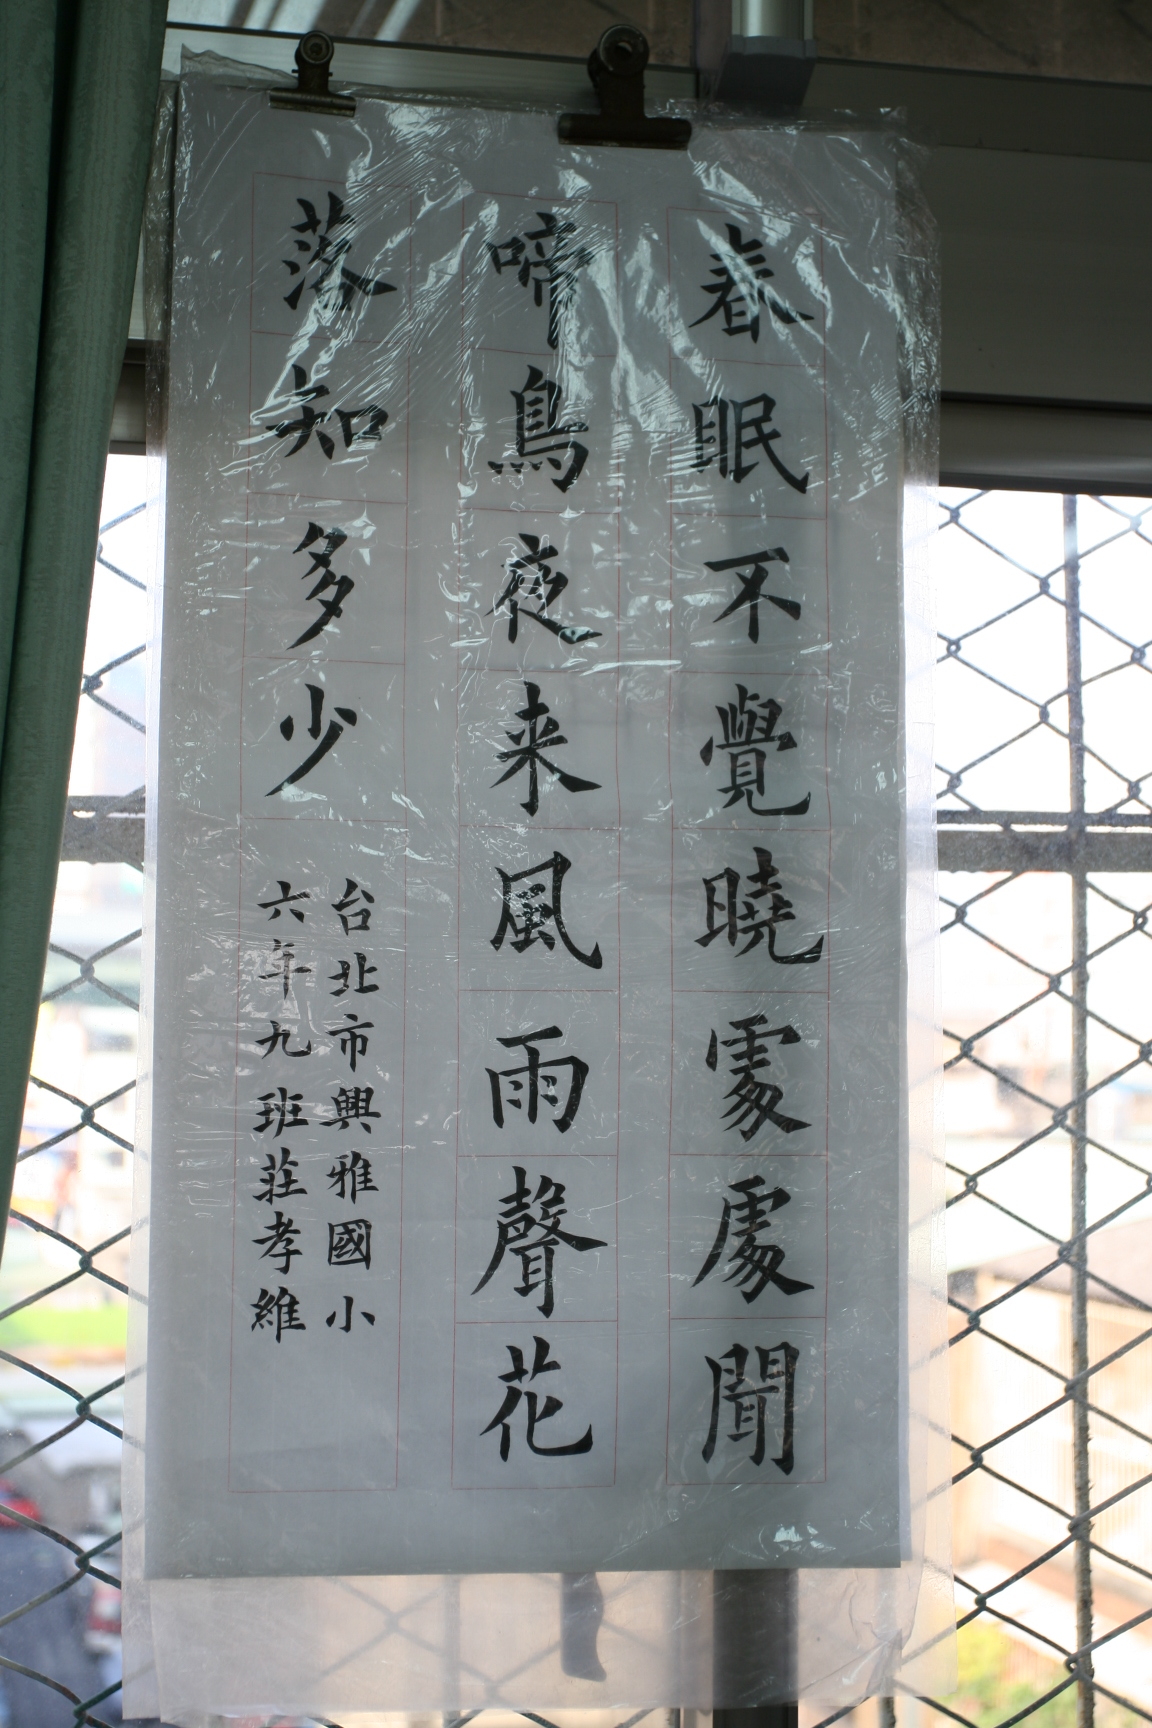 春眠不覺曉處處聞
啼鳥夜来風雨聲花
落知多少
台北市興雅國小
六年九班莊孝維